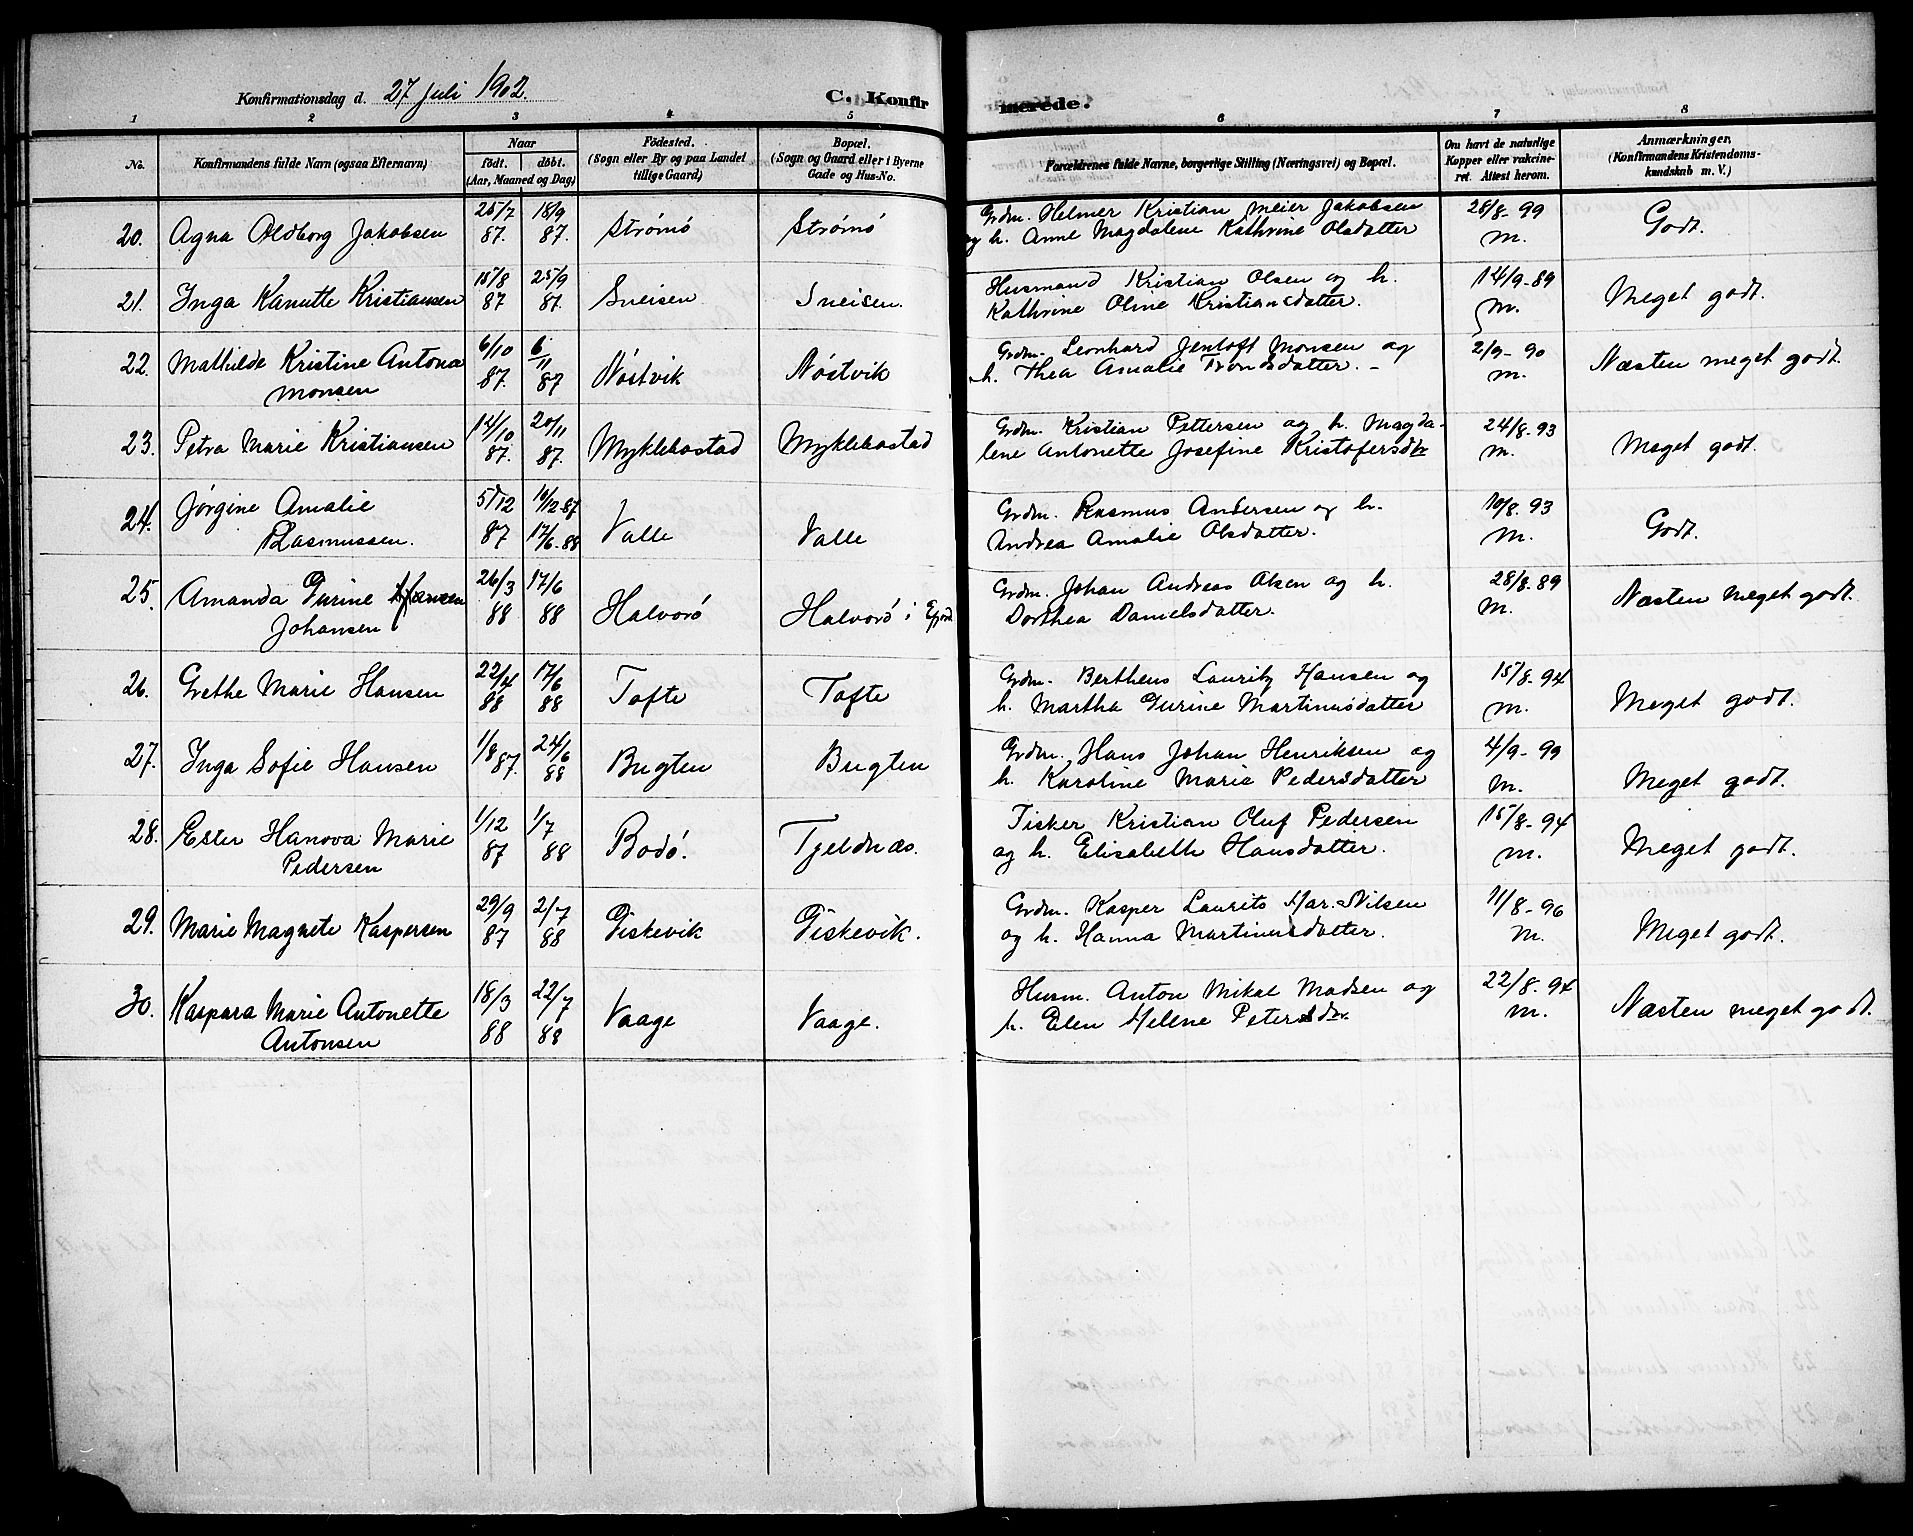 Konfirmationsdag d. 27 Juli 1902. C. Konfirmerede.
1 2 3 4 5 6 7 8
No. Konfirmandens fulde Navn (ogsaa Efternavn) Naar födt. döbt. (Aar, Maaned og Dag) Födested. (Sogn eller By og paa Landet tillige Gaard) Bopæl. (Sogn og Gaard eller i Byerne Gade og Hus-No. Forældrenes fulde Navne, borgerlige Stilling (Næringsvei) og Bopæl. Om havt de naturlige Kopper eller vakcineret. Attest herom. Anmærkninger, (Konfirmandens Kristendomskundskab m. V.)
20. Agna Oldborg Jakobsen 25/7 87. 18/9 87. Strømö Strømö Grdm. Helmer Kristian Meier Jakobsen 28/8-99 Godt.
og h. Anne Magdalene Kathrine Olsdatter m.
21. Inga Kanutte Kristiansen 15/8 87 25/9 87. Sneisen Sneisen. Husmand Kristian Olsen og h. 14/9-89 Meget godt.
Kathrine Oline Kristiansdatter. m.
22. Mathilde Kristine Antona 6/10 87. 6/11 87 Nöstvik Nöstvik Grdm. Leonhard Jentoft Monsen og 2/9-90 Næsten meget godt.
Monsen h. Thea Amalie Trondsdatter. - m.
23. Petra Marie Kristiansen 14/10 87. 20/11 87. Myklebostad Myklebostad Grdm. Kristian Pettersen og h. Magda- 24/8-93 Meget godt.
lene Antonette Josefine Kristofersdtr m.
24. Jørgine Amalie 5/12 87 16/12 87 17/6-88 Valle Valle Grdm. Rasmus Andersen og h. 10/8-93 Godt.
Rasmussen. Andrea Amalie Olsdatter. m.
25. Amanda Gurine Hansen 26/3 88 17/6 88 Halvorö Halvorö i Efjord Grdm. Johan Andreas Olsen og h. 28/8-89 Næsten meget godt.
Johansen Dorthea Danielsdatter. m.
26. Grethe Marie Hansen 22/4 88 17/6 88 Tofte Tofte Grdm. Bertheus Lauritz Hansen og 15/8-94 Meget godt.
h. Martha Gurine Martinusdatter m.
27. Inga Sofie Hansen 1/8 87. 24/6 88 Bugten Bugten Grdm. Hans Johan Henriksen og 4/9-99 Meget godt.
h. Karoline Marie Pedersdatter m.
28. Ester Hanova Marie 1/12 87 1/7 88 Bodö. Tjeldnæs. Fisker Kristian Oluf Pedersen 15/8-94 Meget godt.
Pedersen og h. Elisabeth Hansdatter. m.
29. Marie Magnete Kaspersen 29/9 87 2/7 88 Fiskevik Fiskevik. Grdm. Kasper Laurits Mar. Nilsen 11/8-96 Meget godt.
og h. Hanna Martinusdatter. m.
30. Kaspara Marie Antonette 18/3 88 22/7 88 Vaage Vaage. Husm. Anton Mikal Madsen og 22/8-94 Næsten meget godt.
Antonsen h. Elen Helene Petersdtr. m.